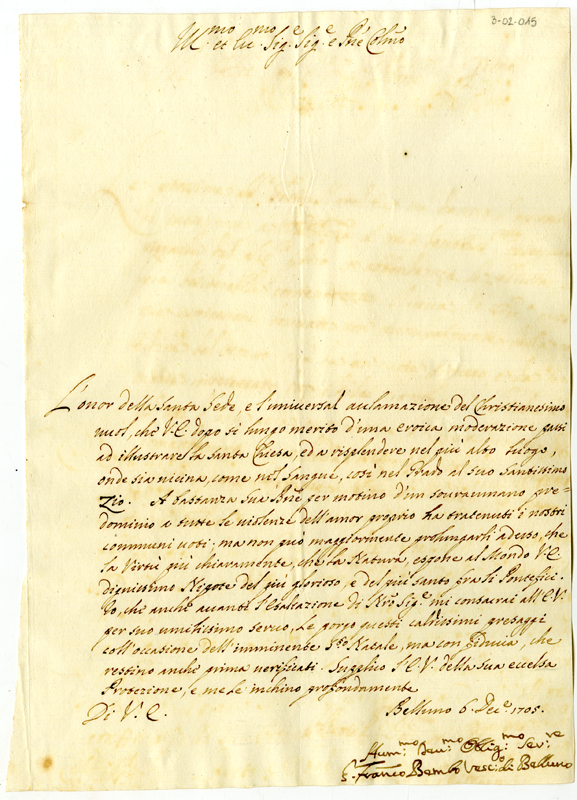 3-02-015
Ill.mo et R.mo Sig.r Sig.r e Pñe Colmo
L'onor della Santa Sede, e l'universal acclamazione del Christianesimo
vuol, che V.E. dopo sì lungo merito d'una eroica moderazione passi
ad illustrare la Santa Chiesa, ed a risplendere nel più alto luogo,
onde sia vicina, come nel sangue, così nel Grado al suo Santissimo
Zio. A bastanza Sua Bne per motivo d'un sovraumano pre-
dominio a tutte le violenze dell'amor proprio ha tratenuti i nostri
communi voti: ma non può maggiormente prolungarli adesso, che
la Virtù più chiaramente, che la Natura, espone al Mondo V.E.
dignissimo Nipote del più glorioso, e del più Santo fra li Pontefici.
Io, che anche avanti l'Esaltazione di Nro Sig.e mi consacrai all'E.V.
per suo umilissimo servo, Le porgo questi caldissimi presaggi
coll'occasione dell'imminente Sto Natale, ma con fiducia, che
restino anche prima verificati. Supplico l'E.V. della sua eccelsa
Protezione, e me Le inchino profondamente
Di V.E. Belluno 6. Dec.e 1705.
Hum.mo Dev.mo Oblig.mo Ser.re
Franco Bembo Vesc.o di Belluno